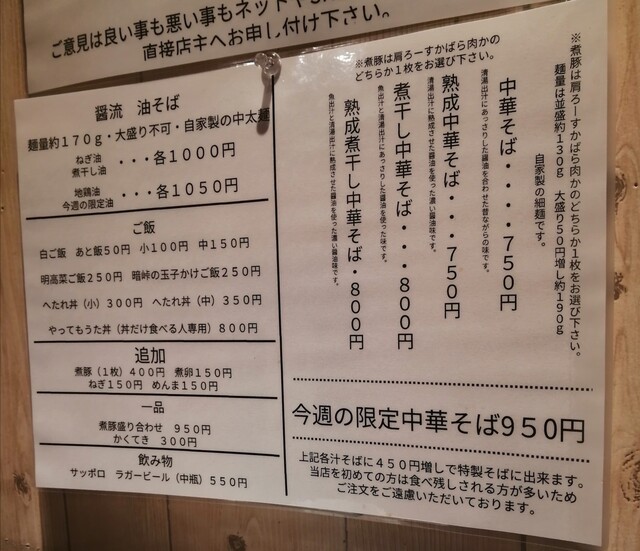 ご意見は良い事も悪い事もネットや
直接店主へお申し付け下さい。
醤流 油そば
麺量約170g・大盛り不可・自家製の中太麺
ねぎ油
煮干し油
・・・各1000円
地鶏油
今週の限定油
・・・各1050円
ご飯
白ご飯 あと飯50円 小100円 中150円
明高菜ご飯250円 暗峠の玉子かけご飯250円
へたれ丼（小）300円 へたれ丼（中）350円
やってもうた丼（丼だけ食べる人専用）800円
追加
煮豚（1枚）400円 煮卵150円
ねぎ150円 めんま150円
一品
煮豚盛り合わせ 950円
かくてき 300円
飲み物
サッポロ ラガービール（中瓶）550円
※煮豚は肩ろーすかばら肉かのどちらか1枚をお選び下さい。
麺量は並盛約130g 大盛り50円増し約190g
自家製の細麺です。
中華そば・・・・750円
清湯出汁にあっさりした醤油を合わせた昔ながらの味です。
熟成中華そば・・・750円
清湯出汁に熟成させた醤油を使った濃い醤油味です。
煮干し中華そば・・・800円
魚出汁と清湯出汁にあっさりした醤油を使った味です。
熟成煮干し中華そば・800円
魚出汁と清湯出汁に熟成させた醤油を使った濃い醤油味です。
※煮豚は肩ろーすかばら肉かの
どちらか1枚をお選び下さい。
今週の限定中華そば950円
上記各汁そばに450円増しで特製そばに出来ます。
当店を初めての方は食べ残しされる方が多いため
ご注文をご遠慮いただいております。